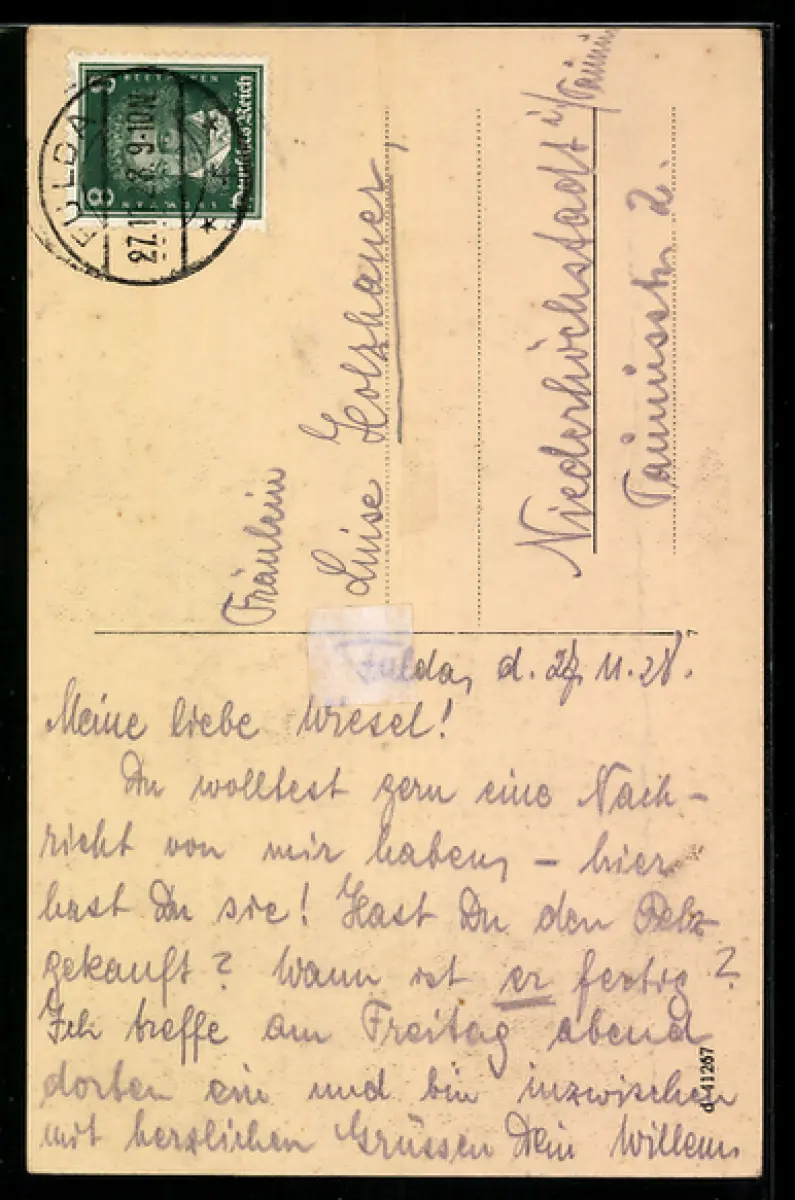 FULDA
27.11.28 9-10
BEETHOVEN
8 8
Deutsches Reich
Fräulein
Luise Holzhauer,
Niederhöchstadt i/Taunus
Taunusstr. 2.
Fulda, d. 27.11.28.
Meine liebe Wiesel!
Du wolltest gern eine Nach-
richt von mir haben, – hier
hast Du sie! Hast Du den Pelz
gekauft? Wann ist er fertig?
Ich treffe am Freitag abend
dorten ein und bin inzwischen
mit herzlichen Grüssen Dein Willem.
d 41267